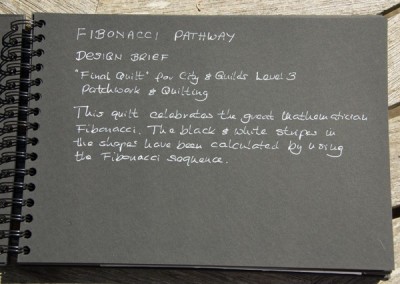 FIBONACCI PATHWAY
DESIGN BRIEF
"Final Quilt" for City & Guilds Level 3
Patchwork & Quilting
This quilt celebrates the great Mathematician
Fibonacci. The black & white stripes in
the shapes have been calculated by using
the Fibonacci sequence.